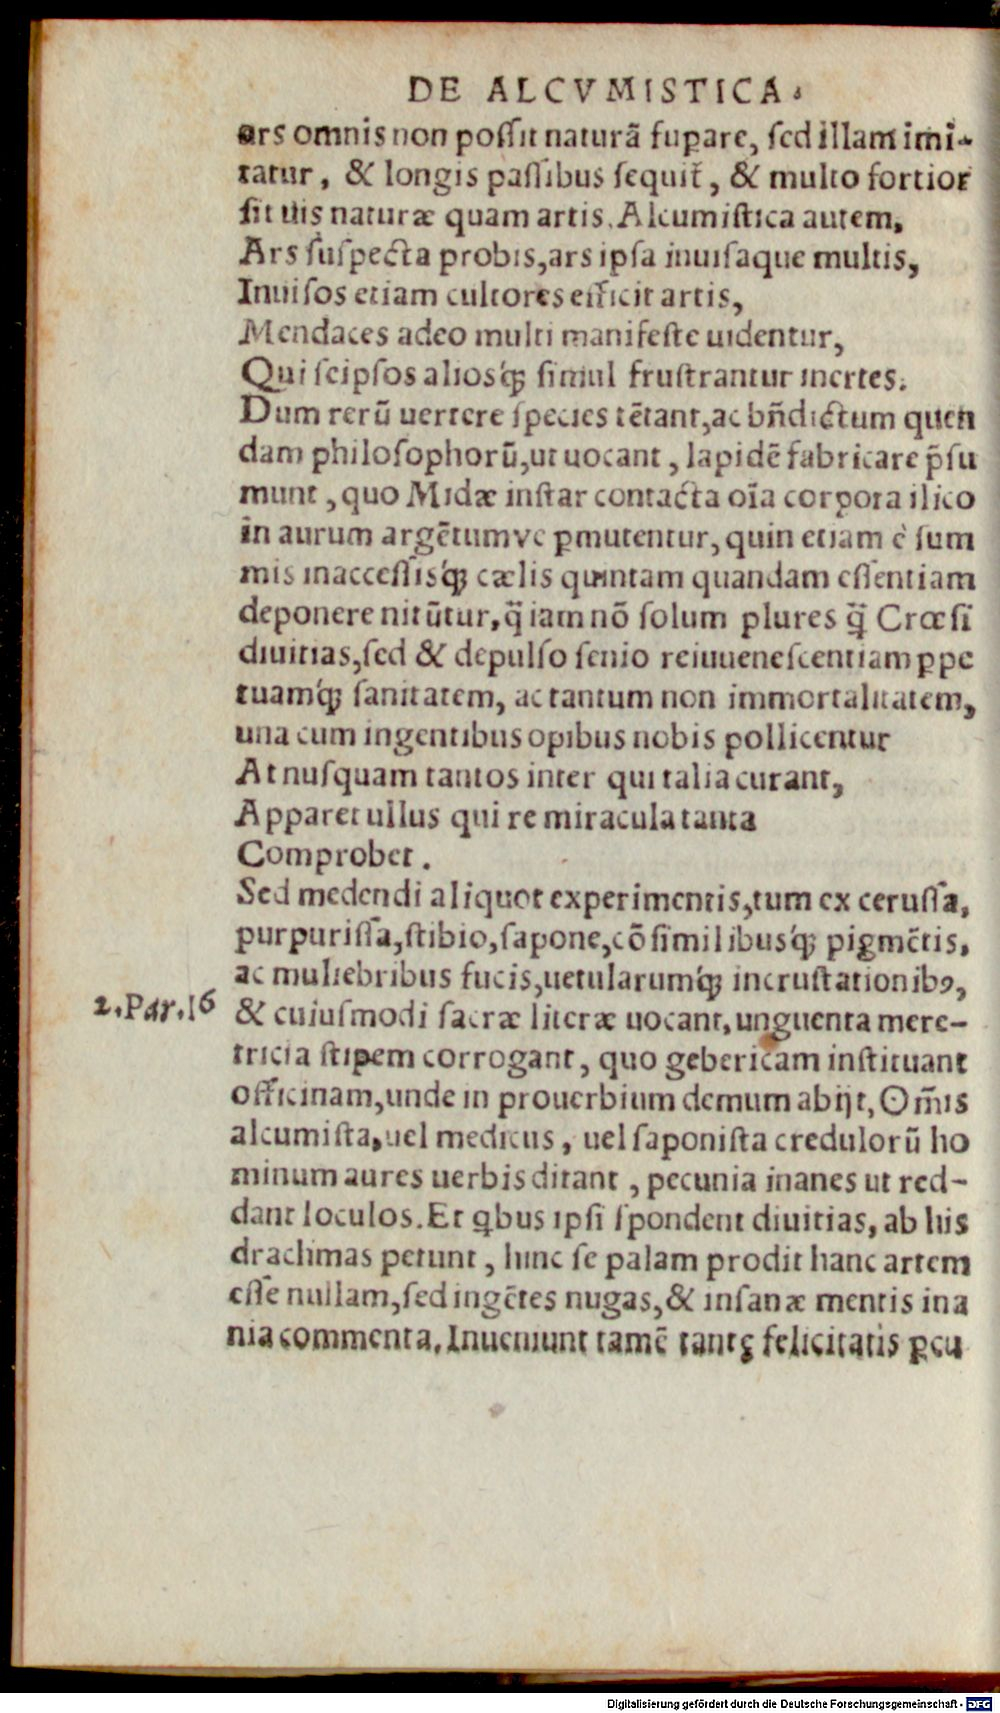 DE ALCVMISTICA.
ars omnis non poſſit naturã ſuꝑare, ſed illam imi-
tatur, & longis paſſibus ſequit̃, & multo fortior
ſit uis naturæ quam artis. Alcumiſtica autem,
Ars ſuſpecta probis, ars ipſa inuiſaque multis,
Inuiſos etiam cultores efficit artis,
Mendaces adeo multi manifeſte uidentur,
Qui ſeipſos alioſq́; ſimul fruſtrantur inertes.
Dum rerũ uertere ſpecies tẽtant, ac bñdictum quen
dam philoſophorũ, ut uocant, lapidẽ fabricare p̃ſu
munt, quo Midæ inſtar contacta oĩa corpora ilico
in aurum argẽtumve ꝑmutentur, quin etiam è ſum
mis inacceſſisq́; cælis quintam quandam eſſentiam
deponere nitũtur, q̃ iam nõ ſolum plures q̃̃ Crœſi
diuitias, ſed & depulſo ſenio reiuueneſcentiam ꝑpe
tuamq́; ſanitatem, ac tantum non immortalitatem,
una cum ingentibus opibus nobis pollicentur
At nuſquam tantos inter qui talia curant,
Apparet ullus qui re miracula tanta
Comprobet.
Sed medendi aliquot experimentis, tum ex ceruſſa,
purpuriſſa, ſtibio, ſapone, cõſimilibusq́; pigmẽtis,
ac muliebribus fucis, uetularumq́; incruſtationibꝰ,
2. Par. 16
& cuiuſmodi ſacræ literæ uocant, unguenta mere-
tricia ſtipem corrogant, quo gebericam inſtituant
officinam, unde in prouerbium demum abijt, Om̃is
alcumiſta, uel medicus, uel ſaponiſta credulorũ ho
minum aures uerbis ditant, pecunia inanes ut red-
dant loculos. Et ꝗbus ipſi ſpondent diuitias, ab his
drachmas petunt, hinc ſe palam prodit hanc artem
eſſe nullam, ſed ingẽtes nugas, & inſanæ mentis ina
nia commenta. Inueniunt tamẽ tantę felicitatis ꝑcu
Digitalisierung gefördert durch die Deutsche Forschungsgemeinschaft - DFG